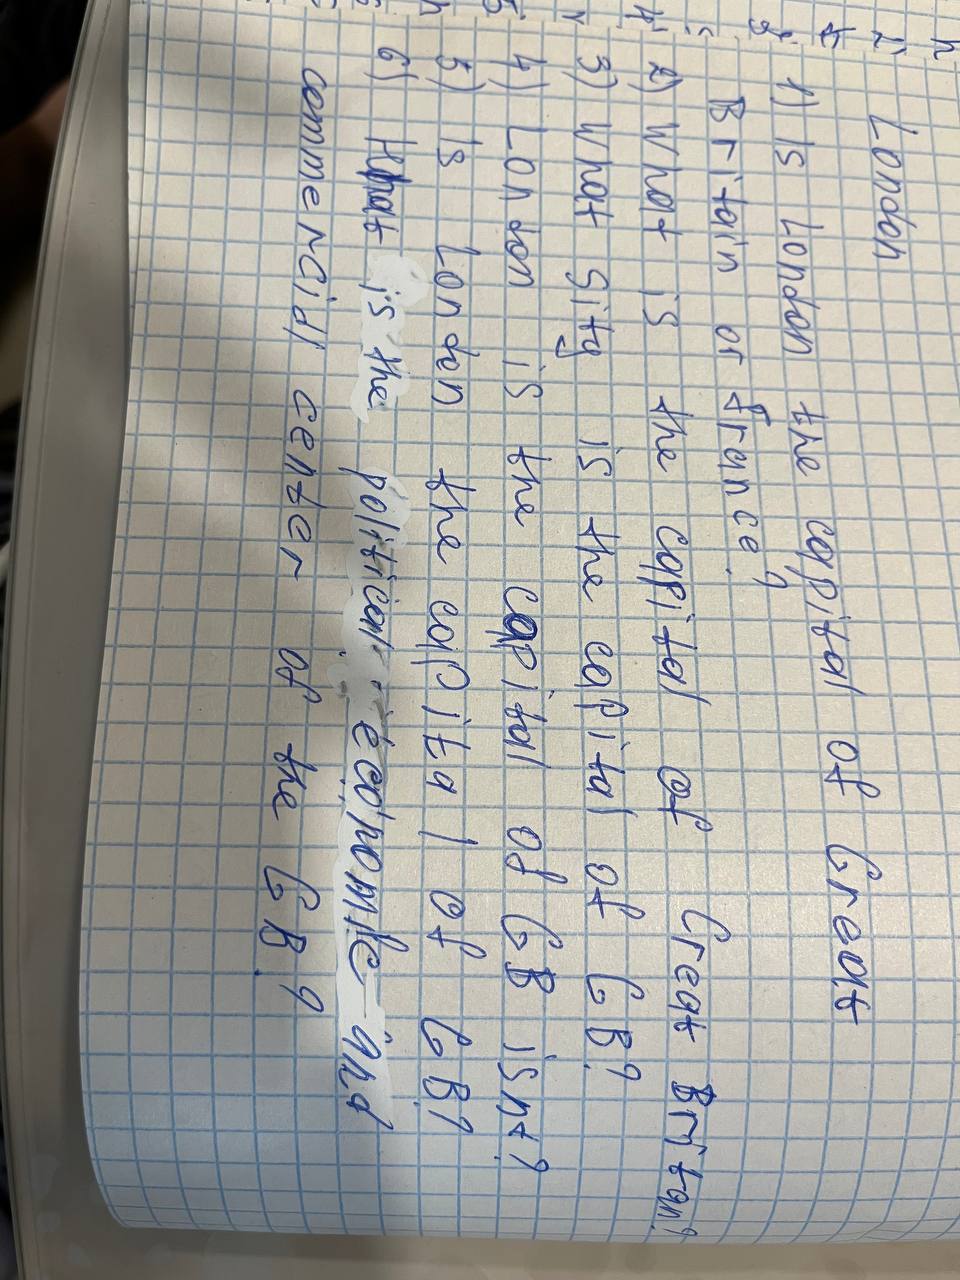 London
1) Is London the capital of Great
Britain or France?
2) What is the capital of Great Britan?
3) What Sity is the capital of GB?
4) London is the capital of GB isnt?
5) Is London the capital of GB?
6) What is the political economic and
commercial center of the GB?